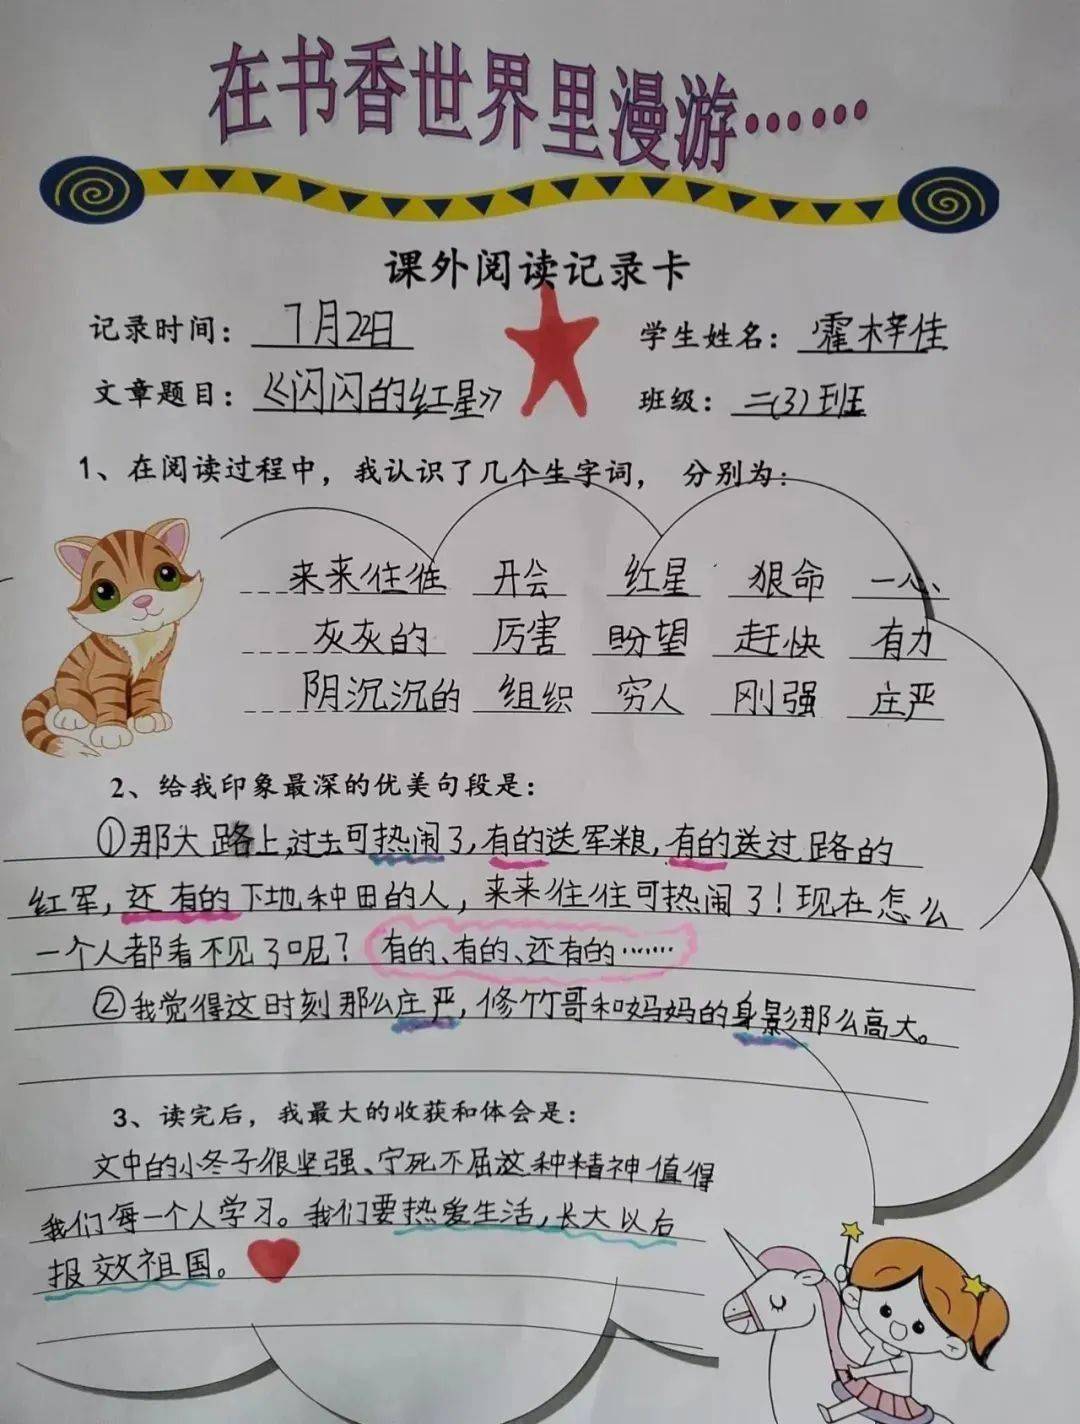 在书香世界里漫游……
课外阅读记录卡
记录时间：7月22日 学生姓名：霍梓佳
文章题目：《闪闪的红星》 班级：二(3)班
1、在阅读过程中，我认识了几个生字词， 分别为：
来来往往 开会 红星 狠命 一心
灰灰的 厉害 盼望 赶快 有力
阴沉沉的 组织 穷人 刚强 庄严
2、给我印象最深的优美句段是：
①那大路上,过去可热闹了,有的送军粮,有的送过路的
红军,还有的下地种田的人,来来往往可热闹了!现在怎么
一个人都看不见了呢?有的、有的、还有的……
②我觉得这时刻那么庄严,修竹哥和妈妈的身影那么高大。
3、读完后，我最大的收获和体会是：
文中的小冬子很坚强、宁死不屈这种精神值得
我们每一个人学习。我们要热爱生活,长大以后
报效祖国。